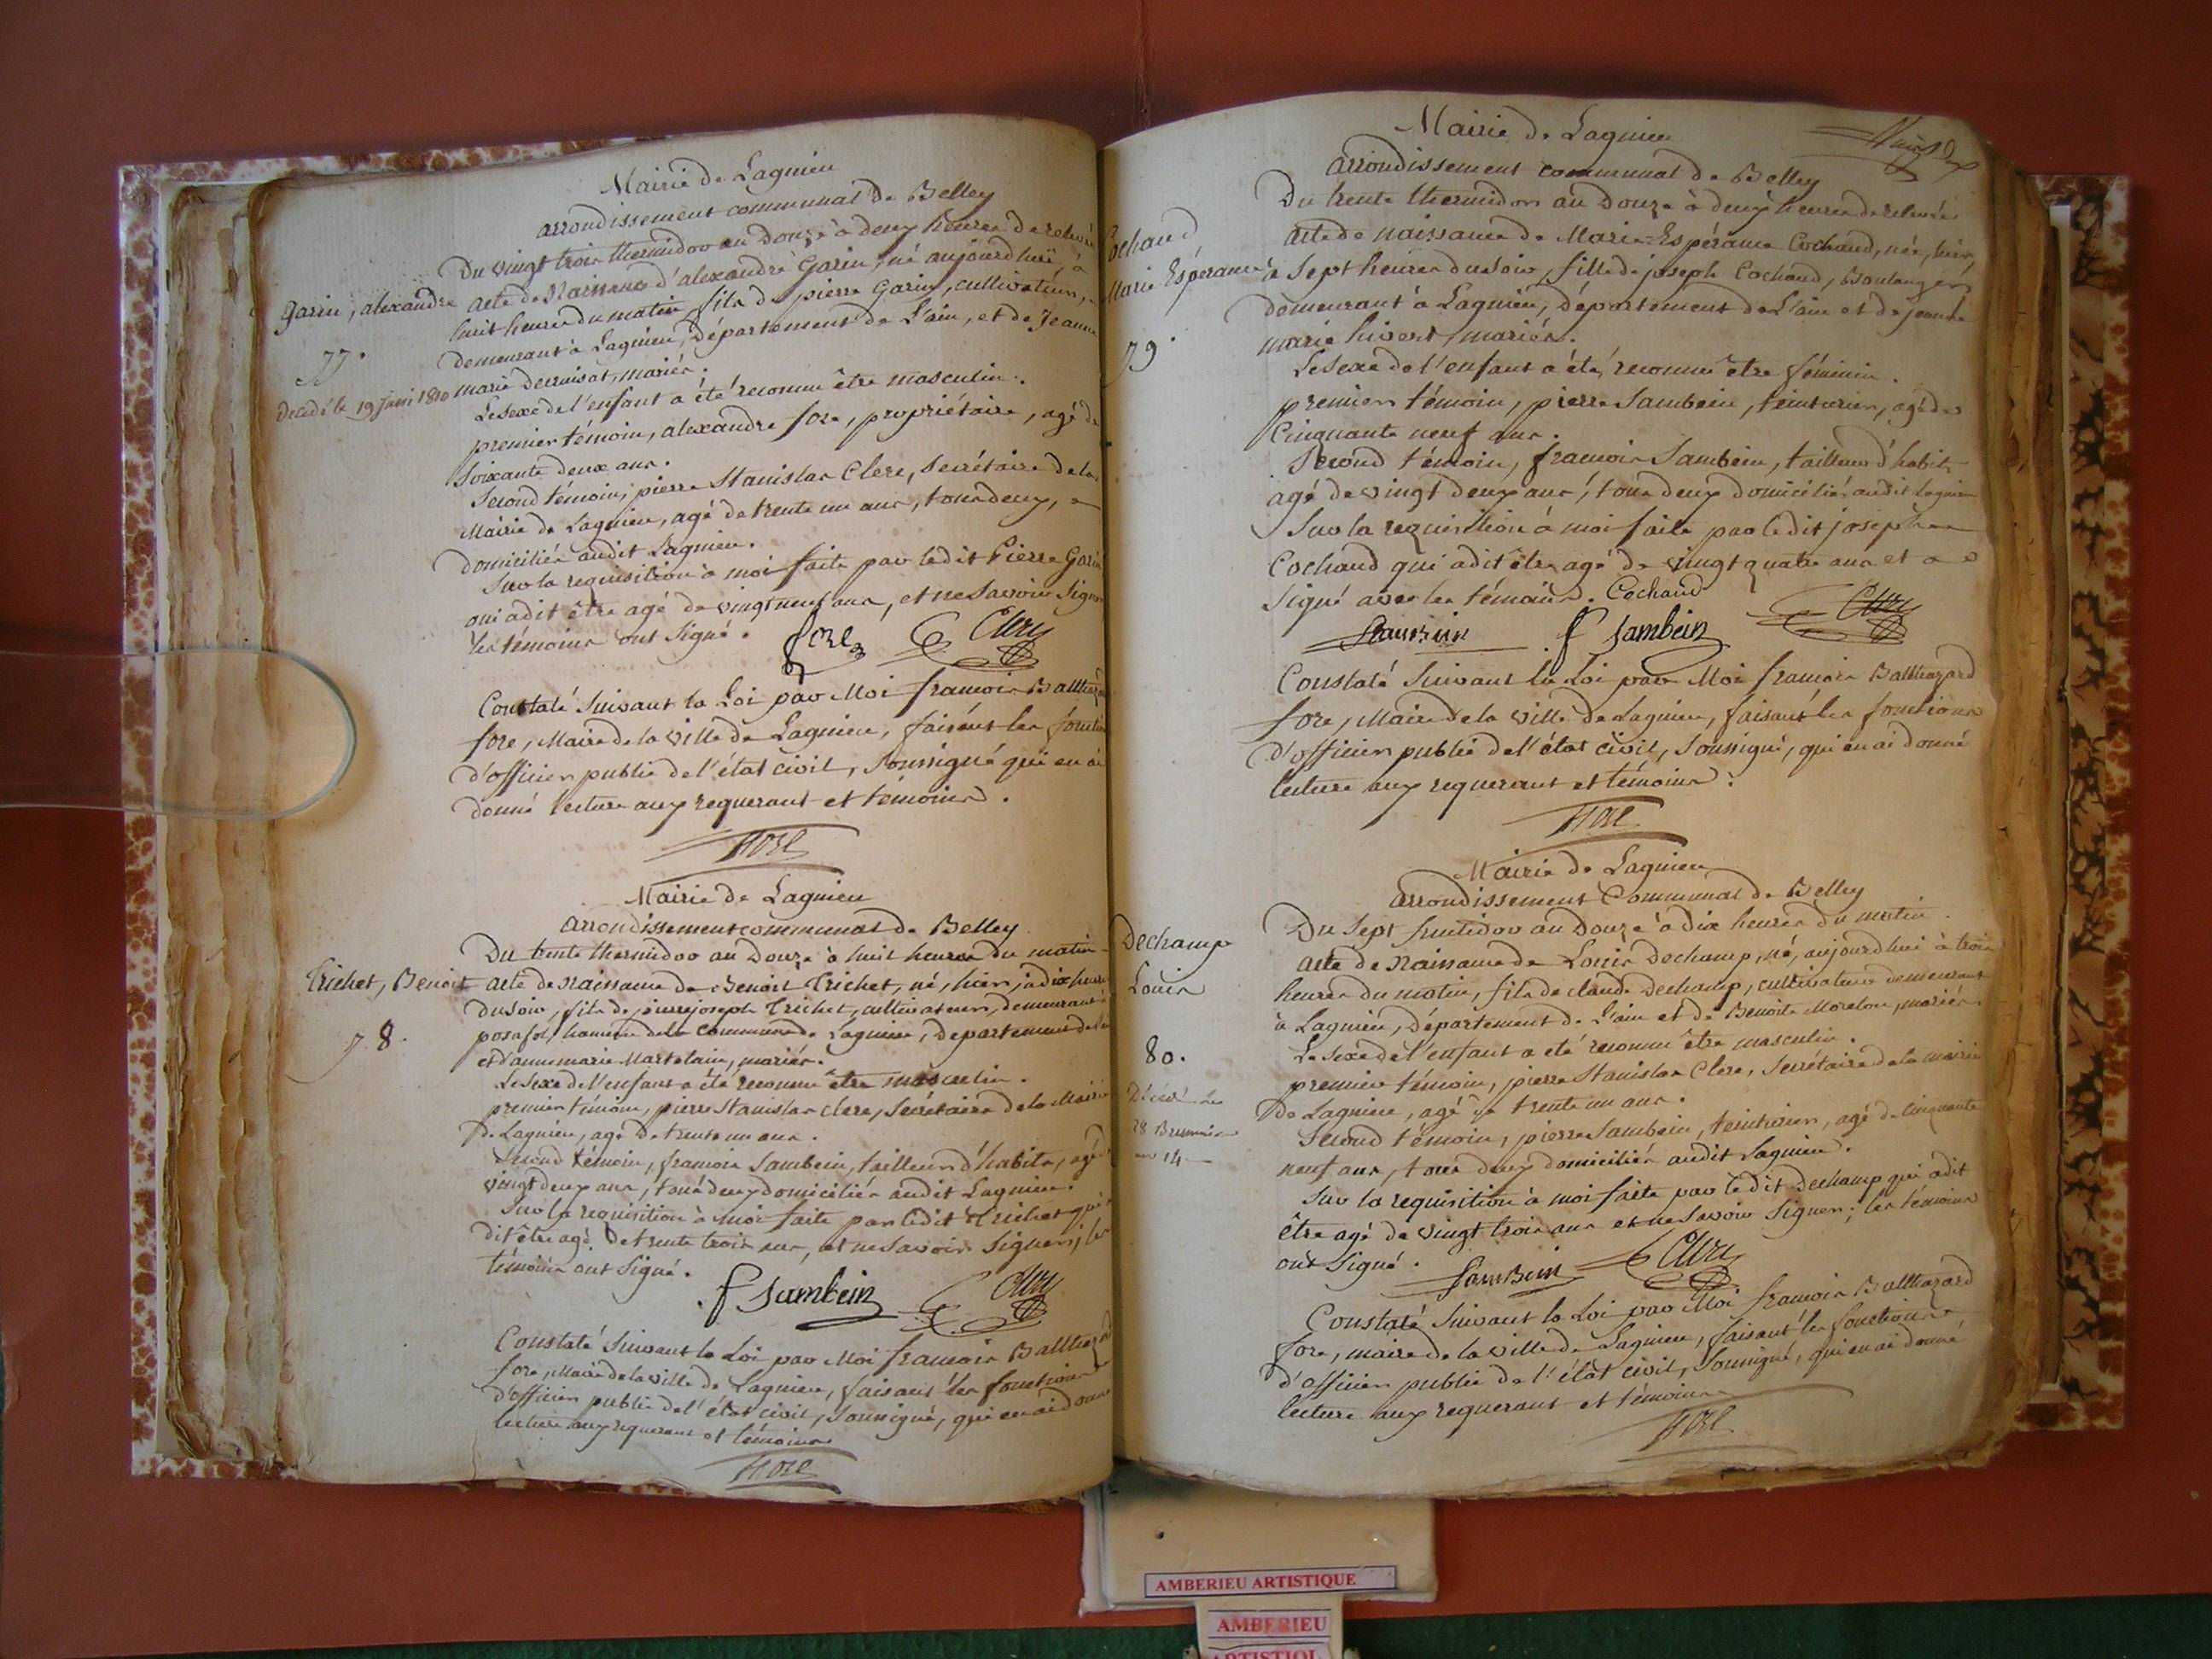 Mairie de Lagnieu
arrondissement communal de Belley
Du vingt trois thermidor an Douze à deux heures de relevée
Garin, alexandre
77.
Decedé le 19 juin 1810
acte de Naissance d'alexandre Garin, né aujourd'hui à
huit heures du matin, fils de pierre Garin, cultivateur,
demeurant à Lagnieu, Département de L'ain, et de Jeanne
marie mariés.
Le sexe de l'enfant a été reconnu être masculin.
premier témoin, alexandre fore, propriétaire, agé de
soixante deux ans.
Second témoin, pierre Stanislas Clerc, Secrétaire de la
Mairie de Lagnieu, agé de trente un ans, tous deux,
domiciliés audit Lagnieu.
Sur la requisition à moi faite par ledit Pierre Garin
qui a dit être agé de vingt neuf ans, et ne savoir signer
les témoins ont signé.
fore Clerc
Constaté suivant la Loi par Moi françois Balthazard
fore, Maire de la ville de Lagnieu, faisant les fonctions
d'officier public de l'état civil, soussigné qui en ai
donné lecture aux requerant et témoins.
fore
Mairie de Lagnieu
arrondissement communal de Belley
Du trente thermidor an Douze à huit heures du matin
Trichet, Benoit
78.
acte de Naissance de Benoit Trichet, né, hier, à dix heures
du soir, fils de pierre joseph Trichet, cultivateur, demeurant à
posafol, hameau de la commune de Lagnieu, departement de
et d'anne marie Martelain, mariés.
Le sexe de l'enfant a été reconnu être masculin.
premier témoin, pierre Stanislas Clerc, Secrétaire de la Mairie
de Lagnieu, agé de trente un ans.
Second témoin, françois Sambein, tailleur d'habits, agé
vingt deux ans, tous deux domiciliés audit Lagnieu.
Sur la requisition à moi faite par ledit Trichet qui a
dit être agé de trente trois ans, et ne savoir signer, les
témoins ont signé.
f Sambein Clerc
Constaté suivant la Loi par Moi françois Balthazard
fore, Maire de la ville de Lagnieu, faisant les fonctions
d'officier public de l'état civil, soussigné, qui en ai donné
lecture aux requerant et témoins
fore
Mairie de Lagnieu
arrondissement communal de Belley
Du trente thermidor an Douze à deux heures de relevée
Cochaud,
Marie Espérance
79.
acte de naissance de Marie-Espérance Cochaud, née, hier,
à sept heures du soir, fille de joseph Cochaud, Boulanger,
demeurant à Lagnieu, département de L'ain et de jeanne
marie hivert, mariés.
Le sexe de l'enfant a été reconnu être féminin.
premier témoin, pierre Sambein, teinturier, agé de
Cinquante neuf ans.
Second témoin, françois Sambein, tailleur d'habits
agé de vingt deux ans, tous deux domiciliés audit Lagnieu
Sur la requisition à moi faite par ledit joseph
Cochaud qui a dit être agé de vingt quatre ans et a
signé avec les témoins. Cochaud
Sambein f Sambein Clerc
Constaté suivant la Loi par Moi françois Balthazard
fore, Maire de la ville de Lagnieu, faisant les fonctions
d'officier public de l'état civil, soussigné, qui en ai donné
lecture aux requerant et témoins.
fore
Mairie de Lagnieu
arrondissement Communal de Belley
Du sept fructidor an Douze à dix heures du matin.
Dechamp
Louis
80.
Décédé le
28 Brumaire
an 14
acte de Naissance de Louis Dechamp, né, aujourd'hui à trois
heures du matin, fils de claude Dechamp, cultivateur demeurant
à Lagnieu, Département de L'ain et de Benoite Morelon, mariés.
Le sexe de l'enfant a été reconnu être masculin.
premier témoin, pierre Stanislas Clerc, Secrétaire de la mairie
de Lagnieu, agé de trente un ans.
Second témoin, pierre Sambein, teinturier, agé de Cinquante
neuf ans, tous deux domiciliés audit Lagnieu.
Sur la requisition à moi faite par ledit Dechamp qui a dit
être agé de vingt trois ans et ne savoir signer; les témoins
ont signé.
Sambein Clerc
Constaté suivant la Loi par Moi françois Balthazard
fore, maire de la ville de Lagnieu, faisant les fonctions
d'officier public de l'état civil, soussigné, qui en ai donné
lecture aux requerant et témoins
fore
AMBERIEU ARTISTIQUE
AMBERIEU